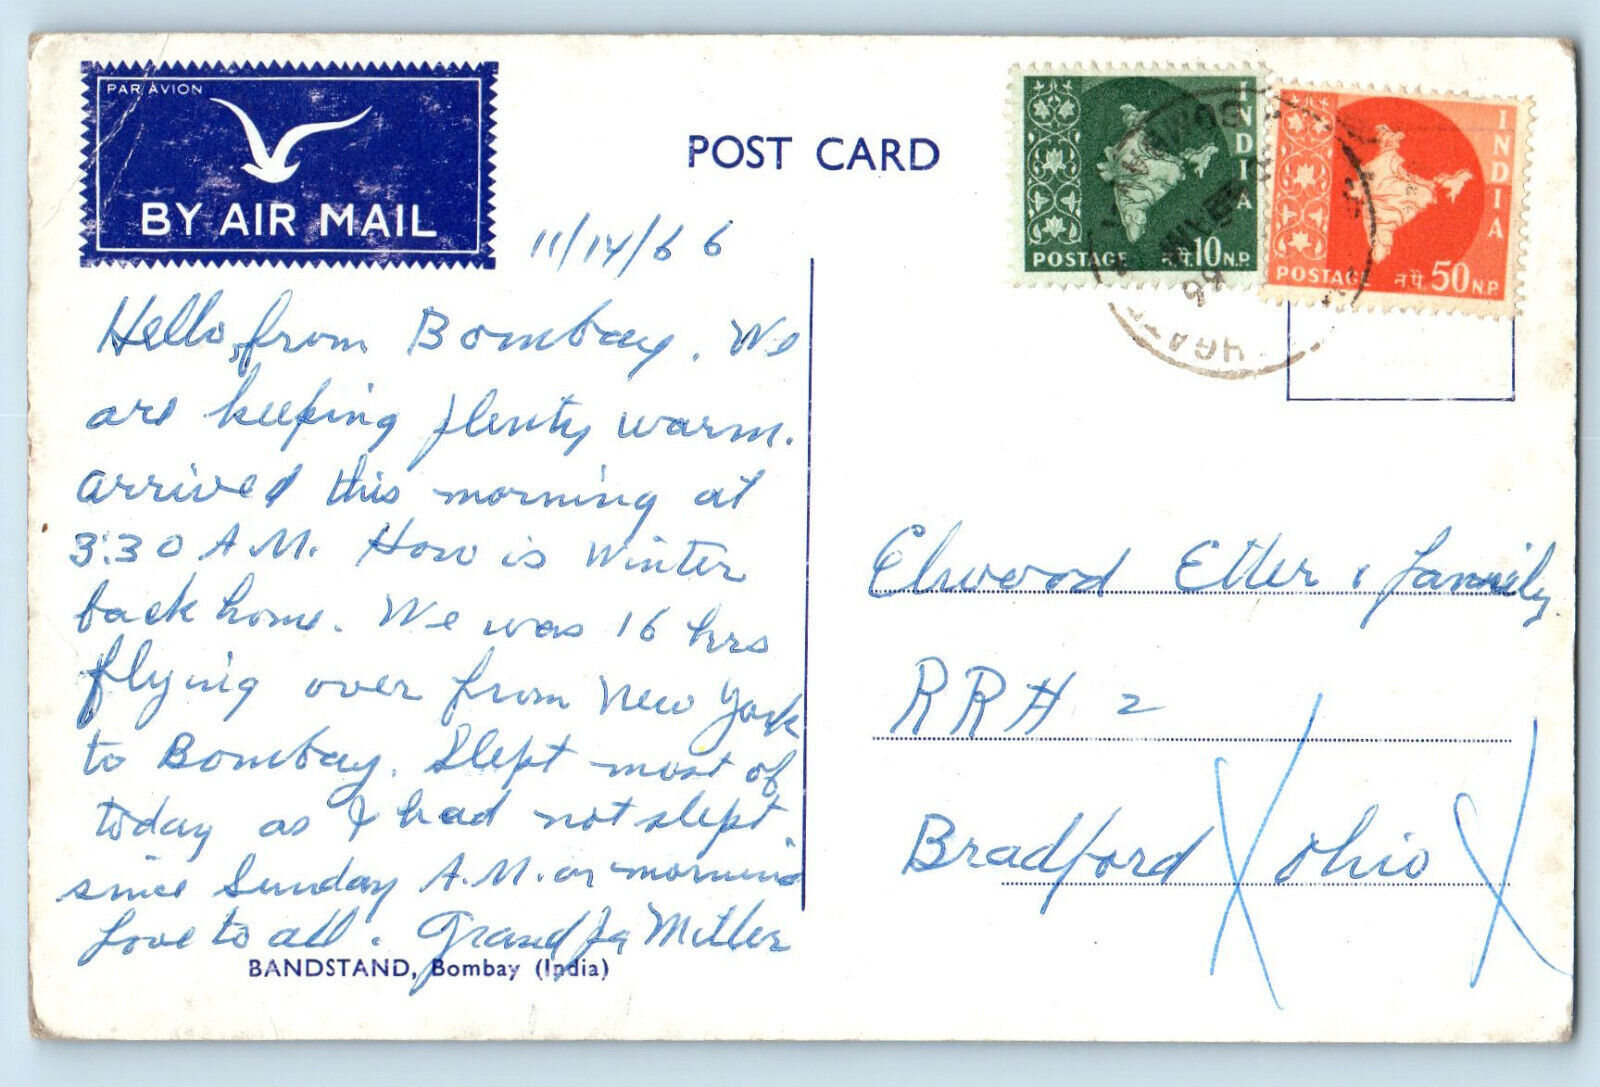 PAR AVION
BY AIR MAIL
POST CARD
INDIA
POSTAGE न.पै. 10 N.P.
INDIA
POSTAGE न.पै. 50 N.P.
BOMBAY
66
11/14/66
Hello, from Bombay. We
are keeping plenty warm.
arrived this morning at
3:30 A.M. How is winter
back home. We was 16 hrs
flying over from New York
to Bombay. Slept most of
today as I had not slept
since Sunday A.M. or morning
Love to all. Grandpa Miller
BANDSTAND, Bombay (India)
Elwood Etter & family
RR# 2
Bradford Ohio